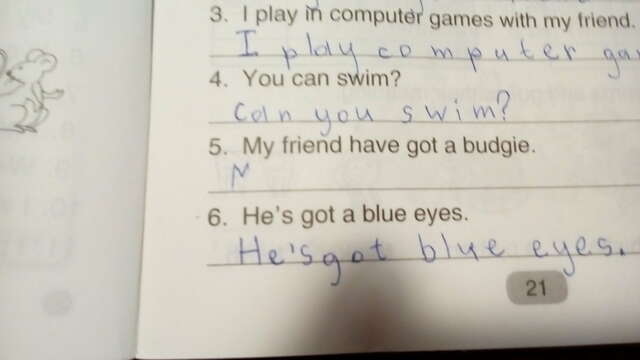 3. I play in computer games with my friend.
I play computer ga
4. You can swim?
Can you swim?
5. My friend have got a budgie.
M
6. He's got a blue eyes.
He's got blue eyes.
21